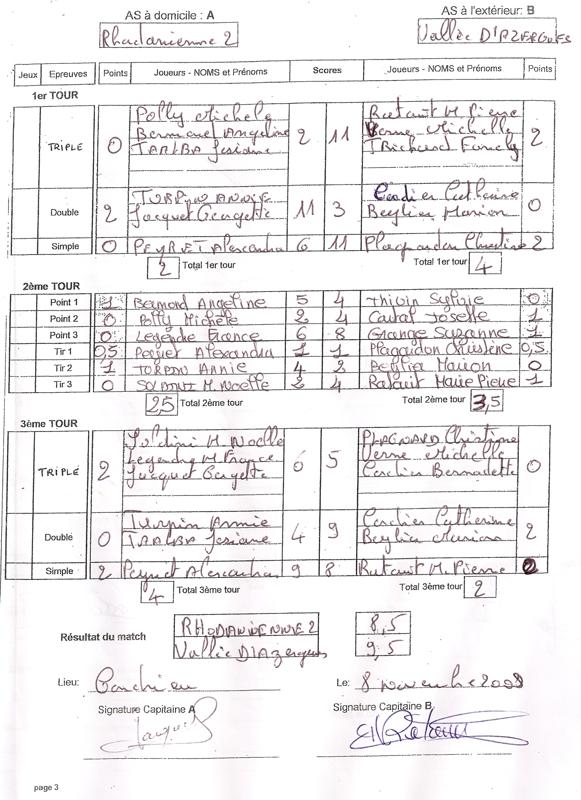 AS à domicile : A
AS à l'extérieur: B
Rhodanienne 2
Vallée D'AZERGUES
Jeux Epreuves Points Joueurs - NOMS et Prénoms Scores Joueurs - NOMS et Prénoms Points
1er TOUR
TRIPLE 0 2 11 2
Polly Michele
Bermond Angeline
TARLBA Josiane
Rataut M. Pierre
Verne Michelle
Double 2 11 3 0
TURPIN ANNIE
Jacquet Georgette
Cordier Catherine
Beylier Marion
Simple 0 PEYRET Alexandra 6 11 Christine 2
2 Total 1er tour
Total 1er tour 4
2ème TOUR
Point 1 1 Bermond Angeline 5 4 Thivin Sylvie 0
Point 2 0 Polly Michèle 2 4 Josette 1
Point 3 0 Legendre France 6 8 Grange Suzanne 1
Tir 1 0,5 Peyret Alexandra 1 1 0,5
Tir 2 1 TORPIN Annie 4 2 Beylier Marion 0
Tir 3 0 M. Noelle 2 4 Rataut Marie Pierre 1
2,5 Total 2ème tour
Total 2ème tour 3,5
3ème TOUR
TRIPLE 2 6 5 0
Soldini M. Noelle
Legendre M. France
Jacquet Georgette
Christine
Verne Michelle
Bernadette
Double 0 4 9 2
Turpin Annie
TARLBA Josiane
Catherine
Beylier Marion
Simple 2 Peyret Alexandra 9 8 Rataut M. Pierre
4 Total 3ème tour
Total 3ème tour 2
Résultat du match
RHODANIENNE 2 8,5
Vallée D'Azergues 9,5
Lieu:
Le: 8 novembre 2008
Signature Capitaine A
Signature Capitaine B
page 3